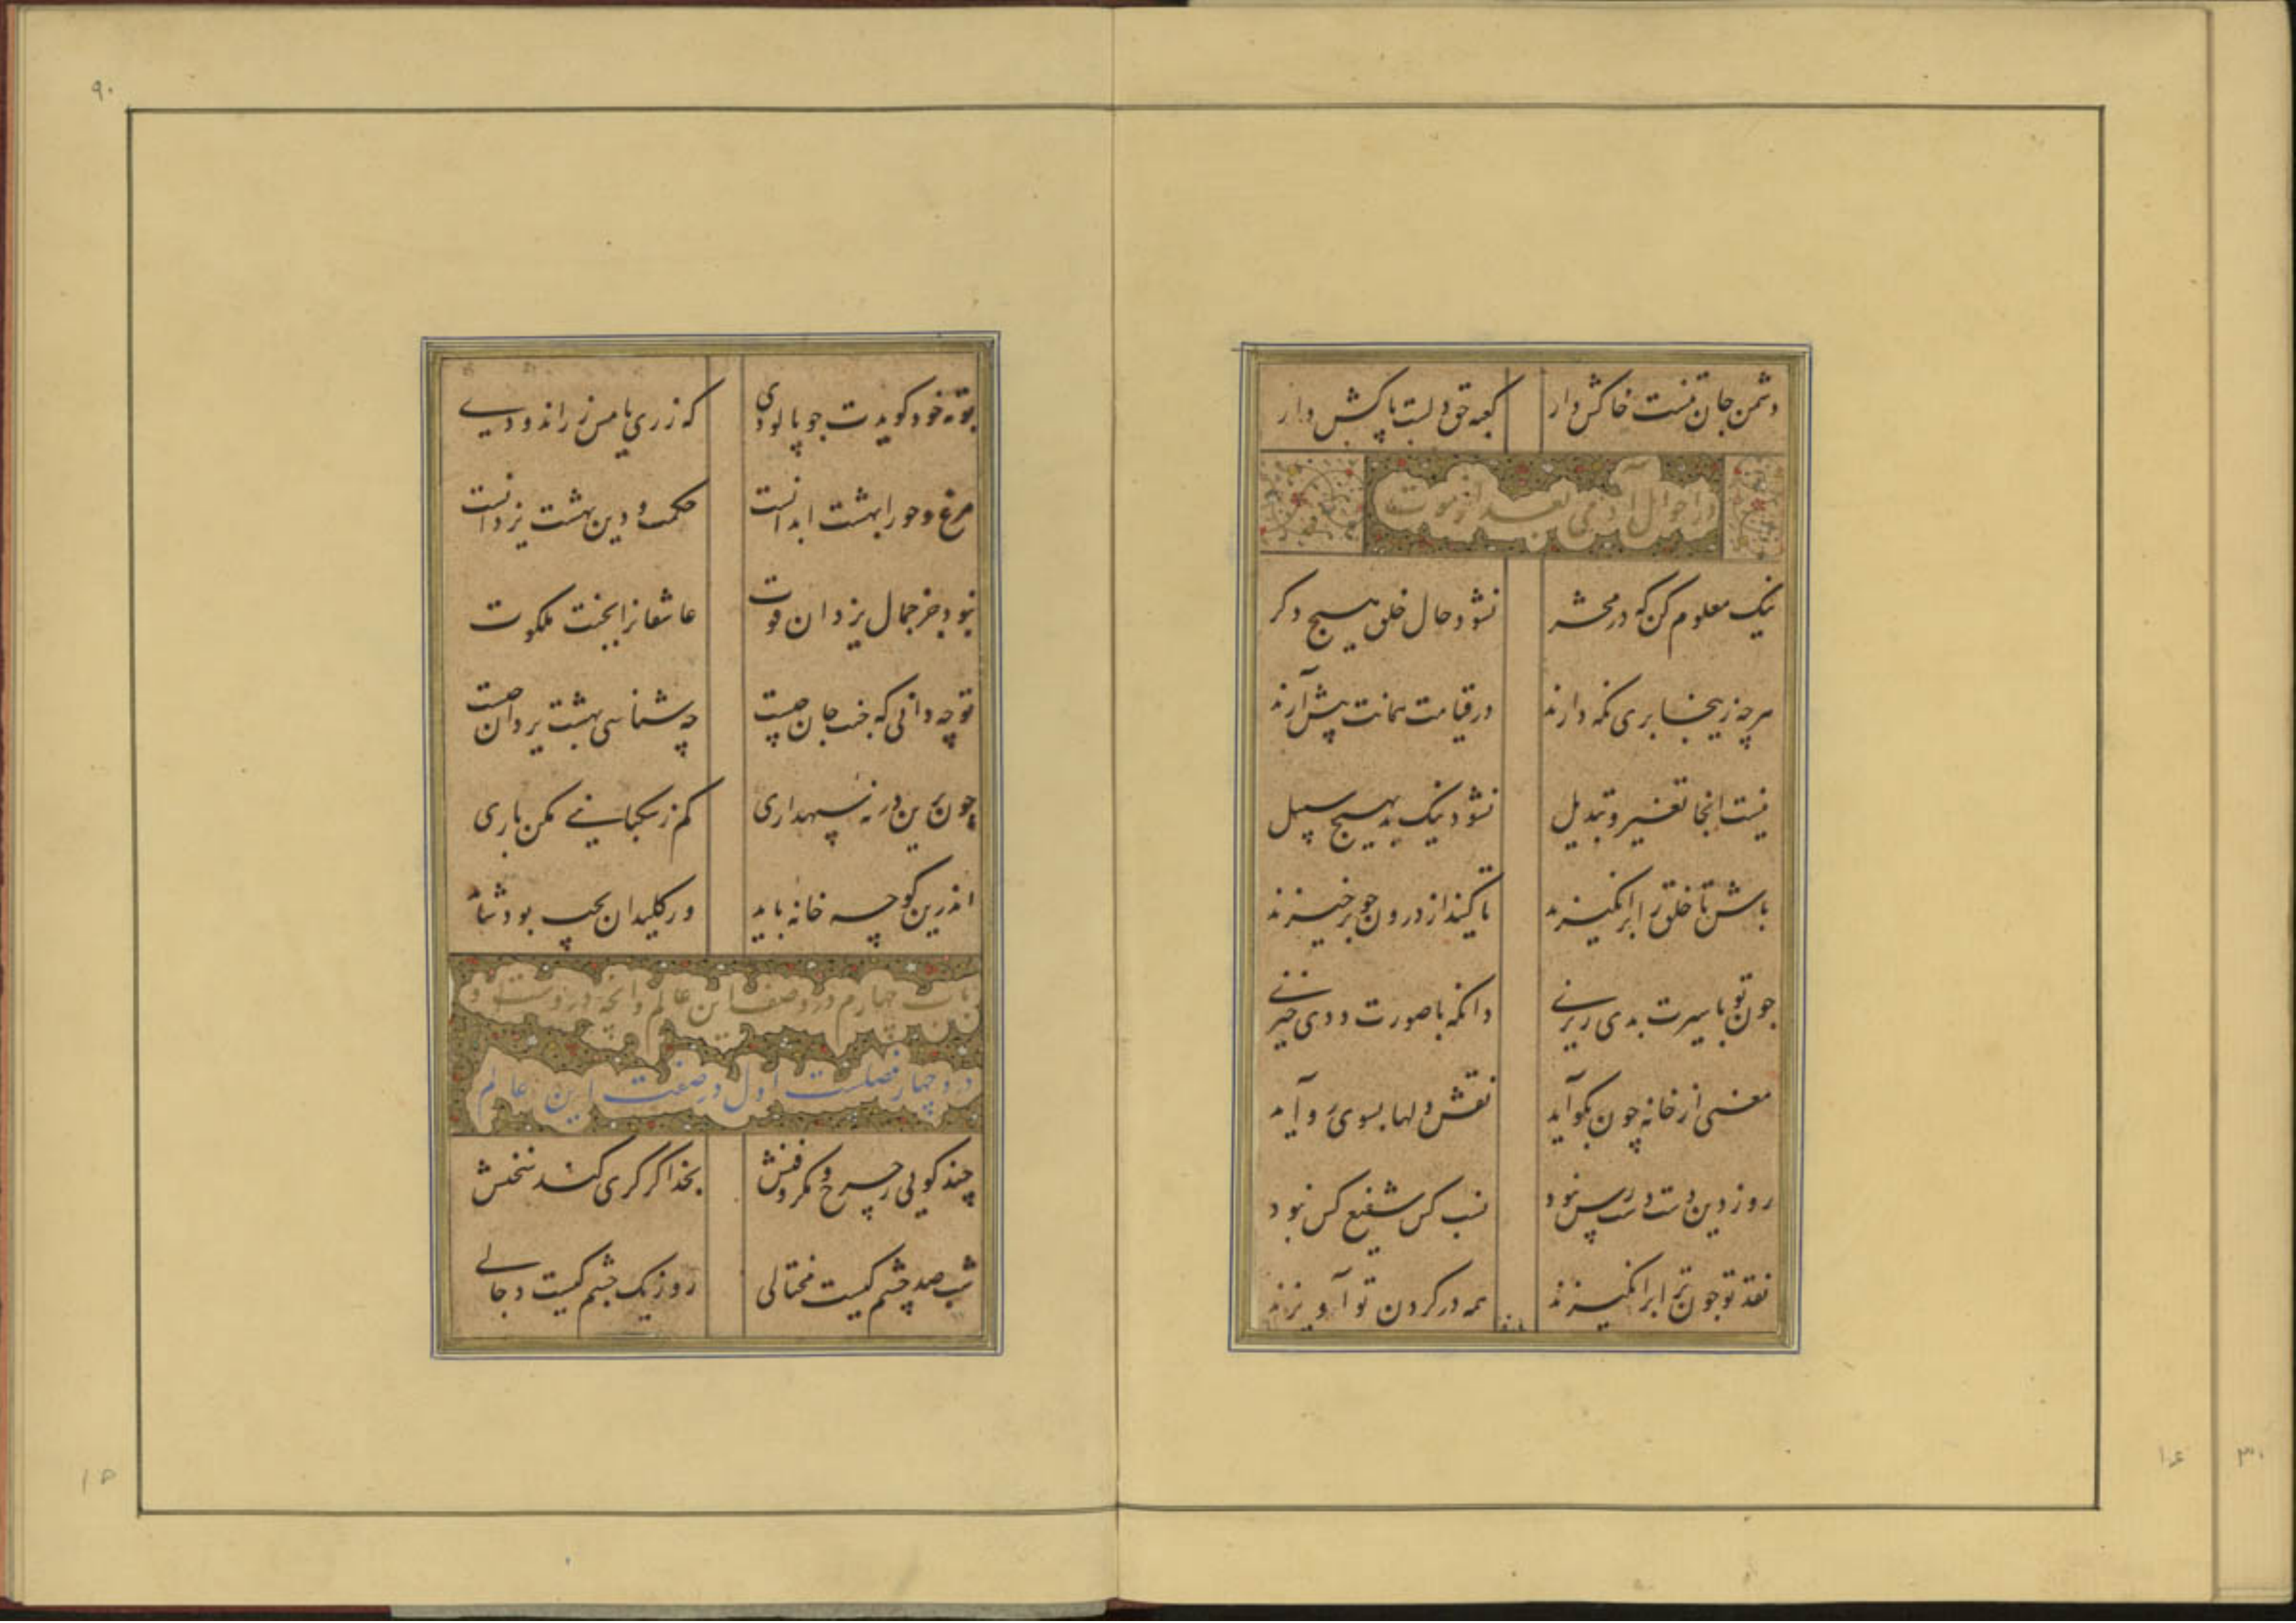 دشمن جان تنست خاکش دار کعبه حق دلست پاکش دار
در احوال آدمی بعد از موت
نیک معلوم کن که در محشر نشود حال خلق هیچ دکر
هرچه زینجا بری نکه دارند در قیامت همانت پیش آرند
نیست انجا تغییر و تبدیل نشود نیک بد بهیچ سبیل
باش تا خلق را برانکیزند تا کیند از درون جو برخیزند
جون تو با سیرت بدی ریزنی دانکه با صورت ددی خیزنی
معنی از خانه چون بکو آید نقش دلها بسوی رو آید
روز دین دست دست رس نبود نسب کس شفیع کس نبود
نقد تو جون ترا برانکیزند همه در کردن تو آویزند
بوته خود کویدت جو پالودی که زری یا مس زر اندودی
مرغ و حور را بهشت ابدانست حکمت و دین بهشت یزدانست
نبود جز جمال یزدان قوت عاشقانرا بجنت ملکوت
تو چه دانی که جنت جان چیست چه شناسی بهشت یزدان چیست
چون برین در نه سپهداری کم ز سکبانیی مکن باری
اندرین کوچه خانه باید ور کلیدان بچپ بود شاید
باب چهارم در وصف این عالم و آنچه دروست و
درو چهار فصلست اول در صفت این عالم
چند کویی ز چرخ و مکر و فنش بخدا کر کری کند سخنش
شب صد چشم کیست محتالی روز یک جشم کیست دجالی
۹۰
۳۰